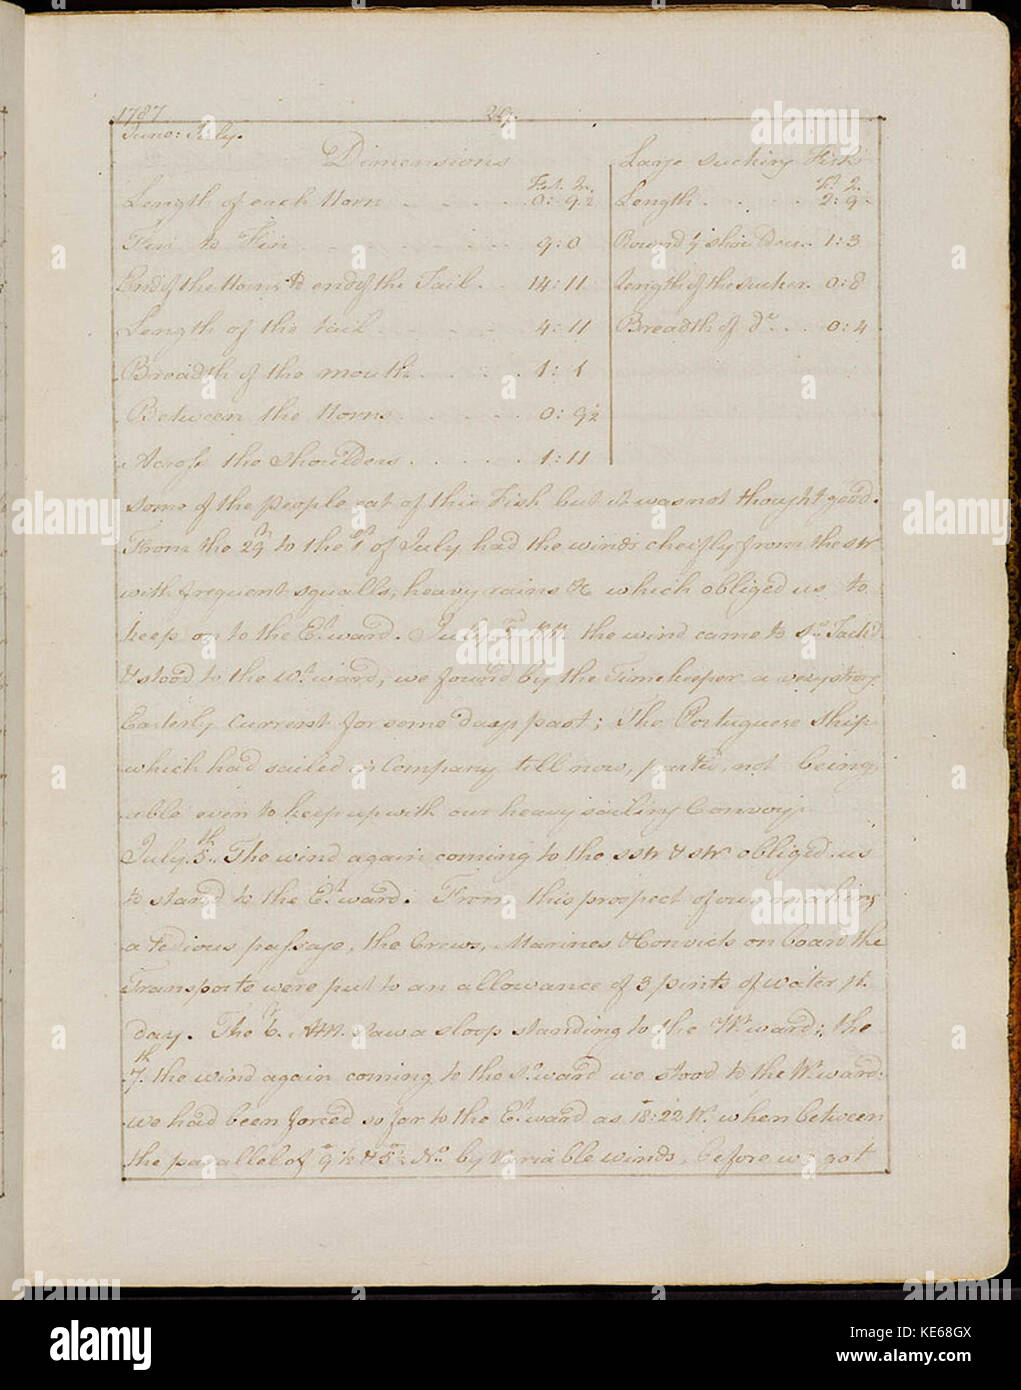 1787
29.
June: July.
Dimensions
Feet. In.
Length of each Horn . . . . . 0: 9½
Fin to Fin . . . . . . 9: 0
End of the Horns to end of the Tail . . 14: 11
Length of the tail . . . . . 4: 11
Breadth of the mouth . . . . 1: 1
Between the Horns . . . . . 0: 9½
Across the Shoulders . . . . . 1: 11
Large sucking Fish
Length . . . . . 2: 9
Round ye shoulders . 1: 3
Length of the sucker . 0: 8
Breadth of do . . 0: 4
some of the people eat of this Fish but it was not thought good.
From the 29th to the 1st of July had the winds cheifly from the SW
with frequent squalls, heavy rains &c which obliged us to
keep on to the Et.ward. July PM. the wind came to So. Tack'd
& stood to the Wt.ward, we found by the Timekeeper a very strong
Easterly Current for some days past; The Portuguese Ship
which had sailed in Company till now, parted, not being
able even to keep up with our heavy sailing Convoy.
July 5th. The wind again coming to the SSW & SW obliged us
to stand to the Et.ward. From this prospect of our making
a tedious passage, the Crews, Marines & Convicts on board the
Transports were put to an allowance of 3 pints of water pr.
day. The 6th. AM. saw a sloop standing to the Wt.ward; the
7th. the wind again coming to the So.ward we stood to the Wt.ward.
we had been forced so far to the Et.ward as 18°: 22 Wt. when between
the parallel of 9°½ & 5°½ No. by Variable winds, before we got
alamy
Image ID: KE68GX
www.alamy.com